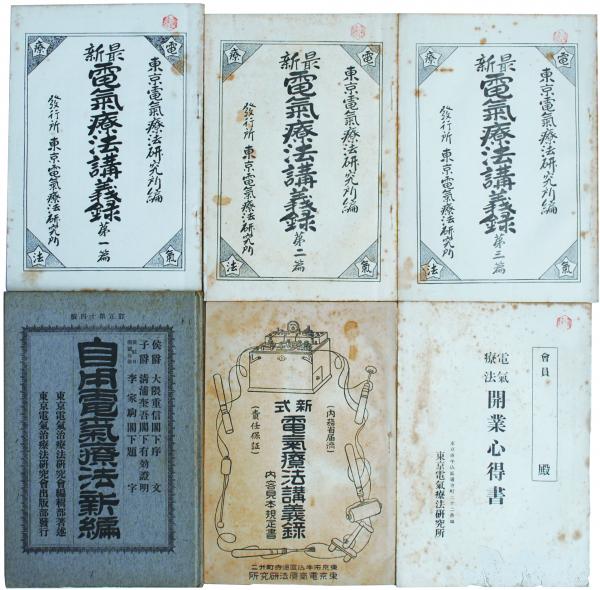 電
療
東京電氣療法研究所編
最新
電氣療法講義錄
第一篇
發行所 東京電氣療法研究所
氣
法
電
療
東京電氣療法研究所編
最新
電氣療法講義錄
第二篇
發行所 東京電氣療法研究所
氣
法
電
療
東京電氣療法研究所編
最新
電氣療法講義錄
第三篇
發行所 東京電氣療法研究所
氣
法
訂正第十四版
侯爵 大隈重信閣下序文
子爵 淸浦奎吾閣下有効證明
李家駒閣下題字
自用電氣療法新編
東京電氣治療法研究會編輯部著述
東京電氣治療法研究會出版部發行
(內務省届濟)
新式
電氣療法講義錄
內容見本規定書
(責任保証)
東京電氣療法研究所
會員 殿
電氣療法
開業心得書
東京電氣療法研究所